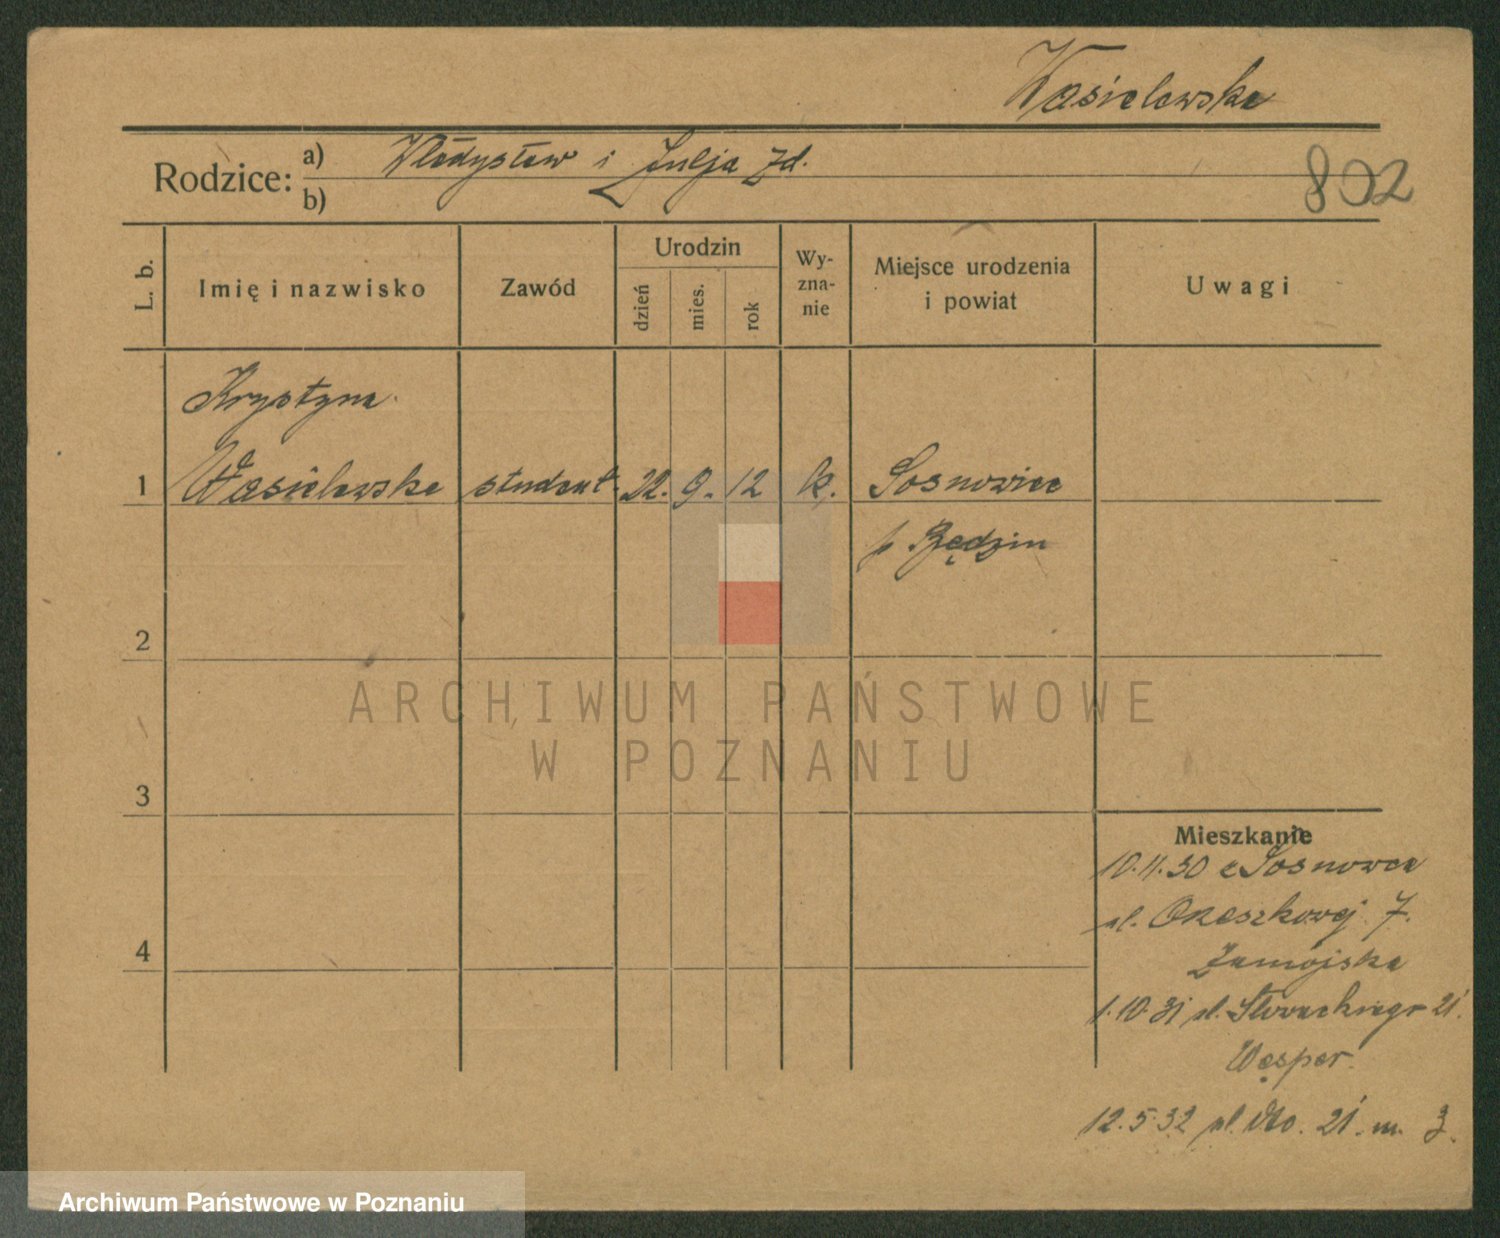 Wasielewska
Rodzice: a) Władysław i Julja zd.
b)
802
L. b.
Imię i nazwisko
Zawód
Urodzin
dzień
mies.
rok
Wy-
zna-
nie
Miejsce urodzenia
i powiat
Uwagi
Krystyna
1 Wasielewska student. 22. 9. 12 k. Sosnowiec
p. Będzin
2
3
4
Mieszkanie
10.11.30 z Sosnowca
ul. Orzeszkowej 7.
Zamojska
1.10.31 ul. Słowackiego 21.
Wesper.
12.5.32 ul. dto. 21. m. 3.
ARCHIWUM PAŃSTWOWE
W POZNANIU
Archiwum Państwowe w Poznaniu